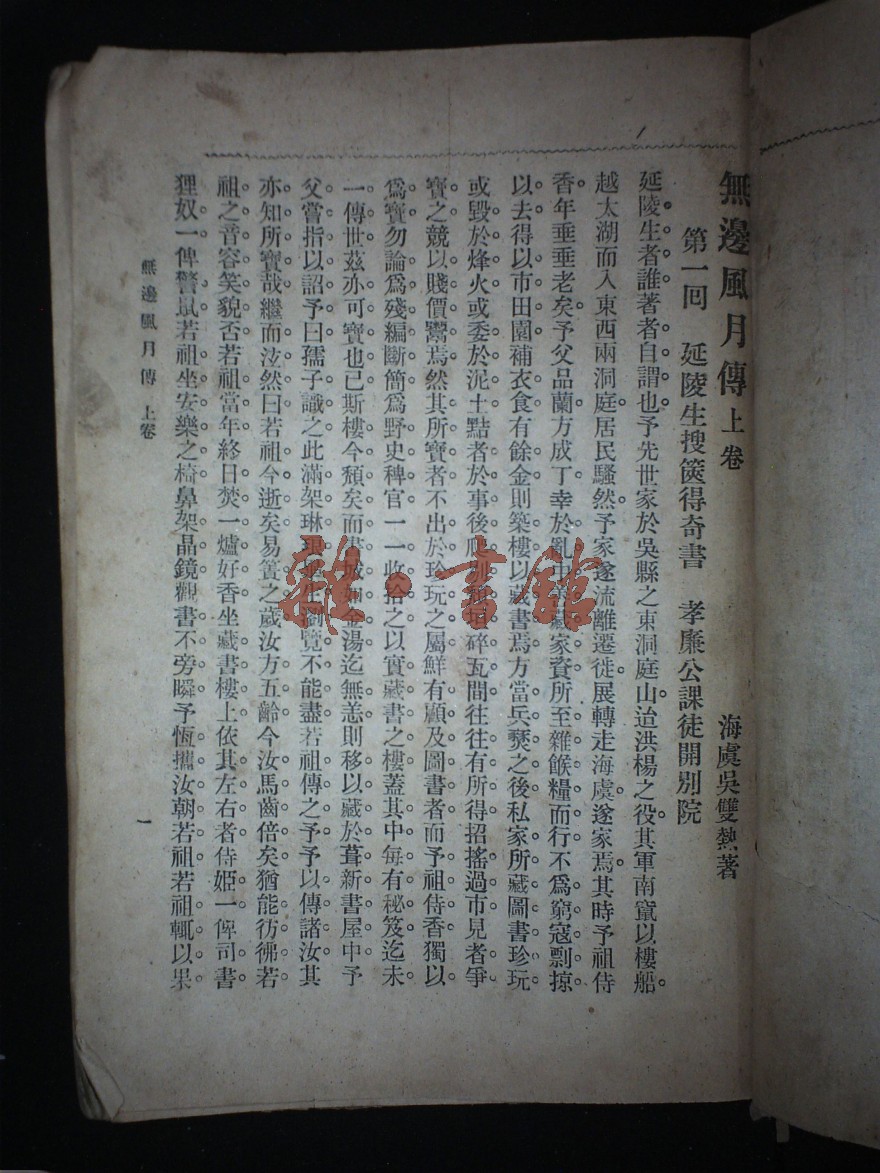 無邊風月傳上卷
海虞吳雙熱著
第一回 延陵生搜篋得奇書 孝廉公課徒開別院
延陵生者誰著者自謂也予先世家於吳縣之東洞庭山迨洪楊之役其軍南竄以樓船。
越太湖而入東西兩洞庭居民騷然。予家遂流離遷徙。展轉走海虞遂家焉。其時予祖侍
香年垂垂老矣。予父品蘭方成丁幸於亂中 藏家資所至雜餱糧而行不爲窮寇剽掠
以去得以市田園補衣食有餘金則築樓以藏書焉方當兵燹之後。私家所藏圖書珍玩。
或毀於烽火或委於泥土。黠者於事後 碎瓦間往往有所得招搖過市見者爭
寶之競以賤價鬻焉。然其所寶者不出於珍玩之屬鮮有顧及圖書者而予祖侍香獨以
爲寶勿論爲殘編斷簡爲野史稗官一一收拾之以實藏書之樓。蓋其中每有秘笈迄未
一傳世茲亦可寶也已斯樓今頹矣而書城如金湯迄無恙則移以藏於葺新書屋中予
父嘗指以詔予曰孺子識之此滿架琳琅 瀏覽不能盡若祖傳之予予以傳諸汝其
亦知所寶哉繼而泫然曰若祖今逝矣。易簀之歲汝方五齡。今汝馬齒倍矣。猶能彷彿若
祖之音容笑貌否。若祖當年終日焚一爐好香坐藏書樓上。依其左右者侍姬一俾司書
狸奴一俾警鼠。若祖坐安樂之椅鼻架晶鏡觀書不旁瞬予恆攜汝朝若祖。若祖輒以果
無邊風月傳 上卷
一
雜·書館